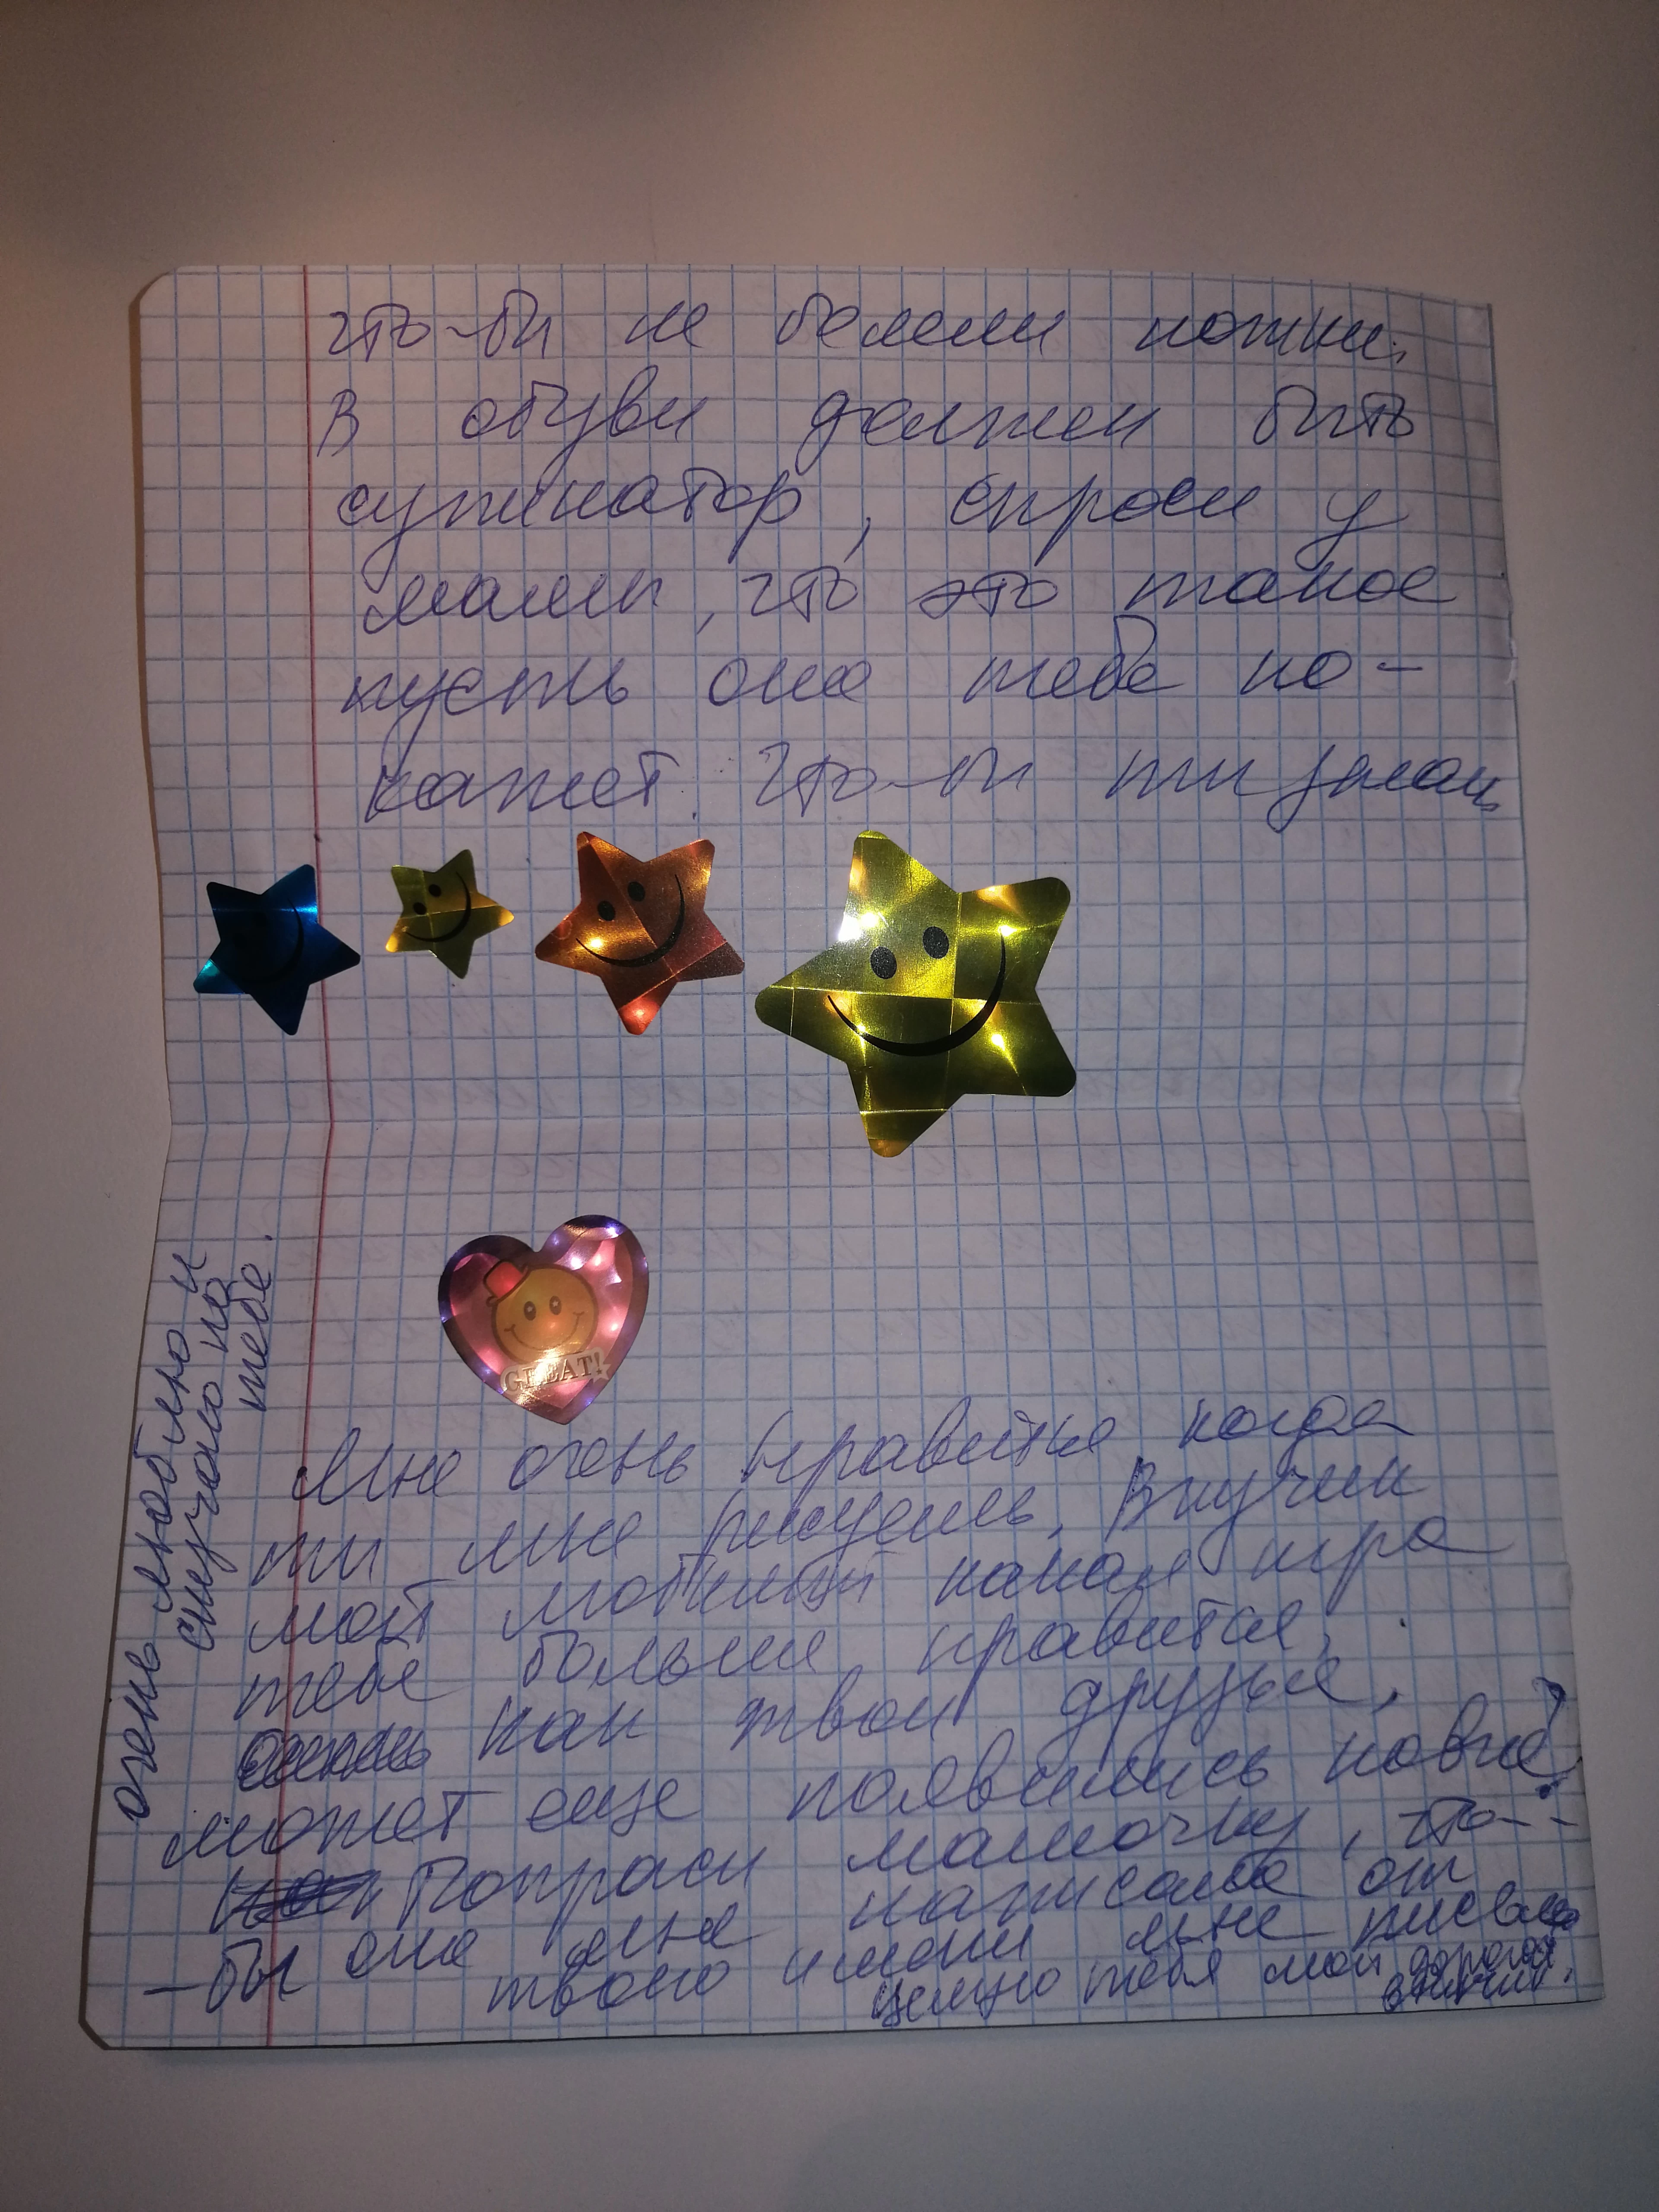 что-би не болели ножки.
В обуви должен бить
супинатор, спроси у
мамы, что это такое
пусть она тебе по-
кажет. что-би ти знал
GREAT!
Мне очень нравится когда
ти мне рисуешь. Внучек
мой любимый какая игра
тебе больше нравится,
как твои друзья,
может еще появились новие?
Попроси мамочку, что-
-бы она мне написала от
твоего имени мне письмо
целую тебя мой дорогой
внучик.
очень люблю и
скучаю по
тебе.